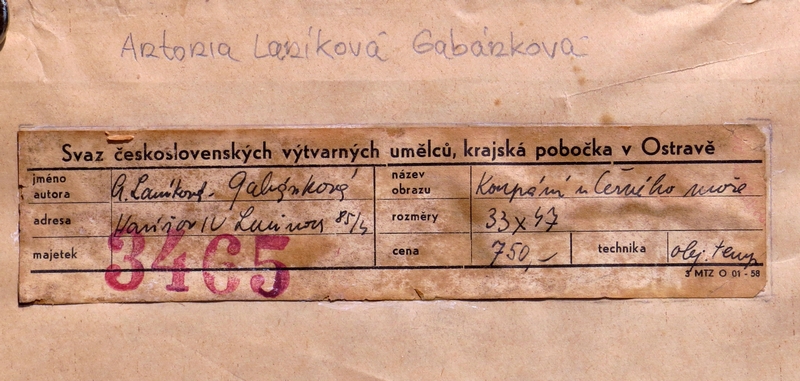 Antonia Laníková Gabánková
Svaz československých výtvarných umělců, krajská pobočka v Ostravě
jméno autora A. Laníková - Gabánková
název obrazu Koupání u Černého moře
adresa Havířov IV 85/4
rozměry 33 x 47
majetek 3465
cena 750,-
technika olej. temp
5 MTZ O 01 - 58